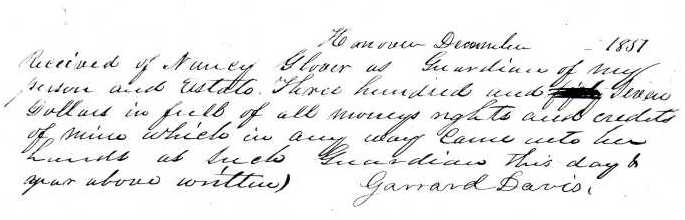 Hanover December - 1857
Received of Nancy Glover as Guardian of my
person and Estate. Three hundred and Seven
Dollars in full of all moneys rights and credits
of mine which in any way came into her
hands as such Guardian this day &
year above written)
Garrard Davis.